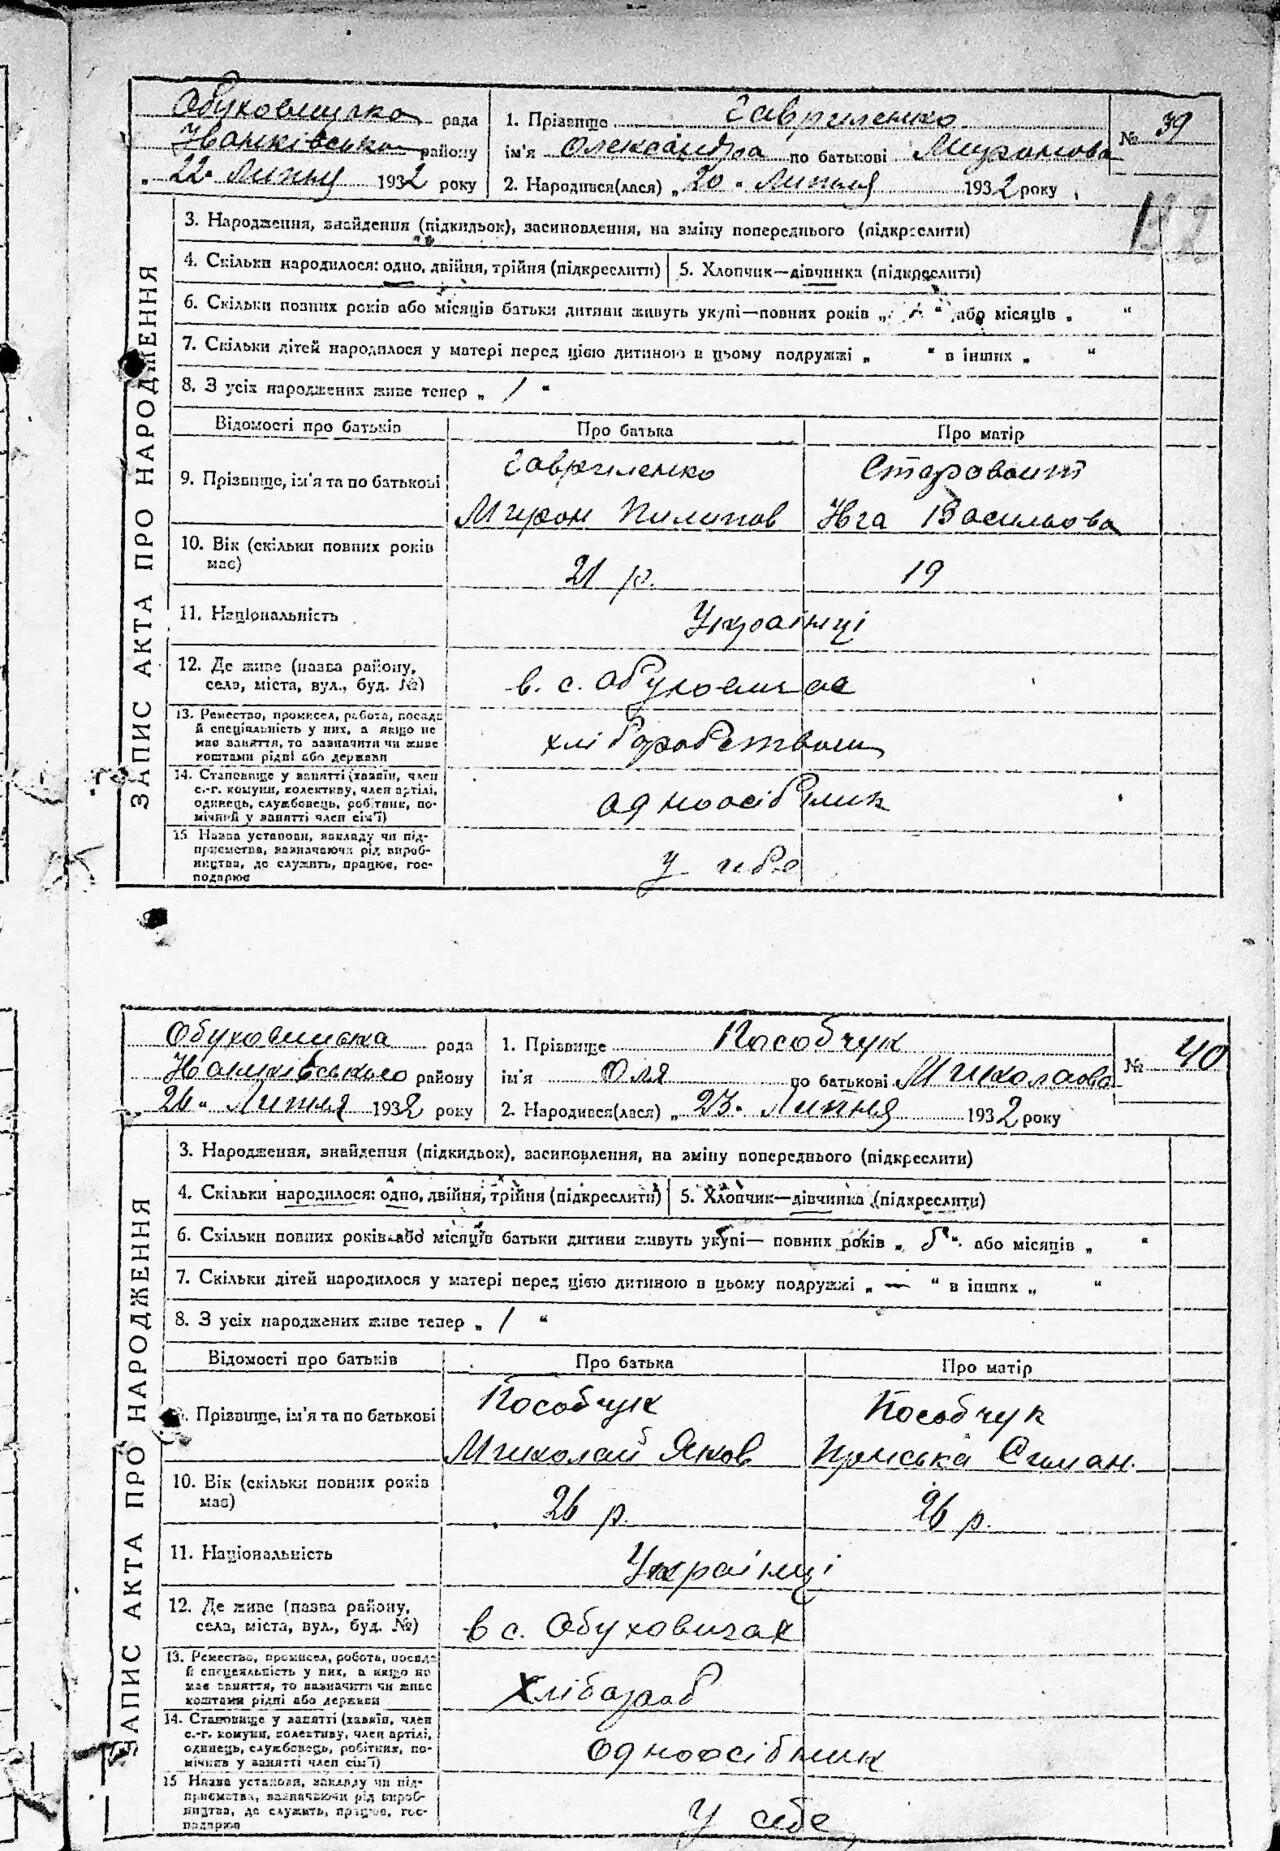 Обуховицька рада
Іванківсько району
22 Липня 1932 року
1. Прізвище Гавриленко
ім'я Олександра по батькові Миронова
2. Народився(лася) „20" Липня 1932 року
№ 39
ЗАПИС АКТА ПРО НАРОДЖЕННЯ
3. Народження, знайдення (підкидьок), засиновлення, на зміну попереднього (підкреслити)
4. Скільки народилося: одно, двійня, трійня (підкреслити) 5. Хлопчик—дівчинка (підкреслити)
6. Скільки повних років або місяців батьки дитини живуть укупі—повних років „ " або місяців „ "
7. Скільки дітей народилося у матері перед цією дитиною в цьому подружжі „ " в інших „ "
8. З усіх народжених живе тепер „ 1 "
Відомості про батьків Про батька Про матір
9. Прізвище, ім'я та по батькові Гавриленко Мирон Пилипов Старовойт Васильова
10. Вік (скільки повних років має) 21 р. 19
11. Національність Українці
12. Де живе (назва району, села, міста, вул., буд. №) в. с. Обуховичах
13. Ремество, промисел, робота, посада й спеціальність у них, а якщо не має заняття, то зазначити чи живе коштами рідні або держави хліборобством
14. Становище у занятті (хазяїн, член с.-г. комуни, колективу, член артілі, одинець, службовець, робітник, помічний у занятті член сім'ї) одноосібник
15 Назва установи, закладу чи підприємства, зазначаючи рід виробництва, де служить, працює, господарює у себе
Обуховицька рада
Іванківського району
24 Липня 1932 року
1. Прізвище Пособчук
ім'я Оля по батькові Миколаова
2. Народився(лася) „23" Липня 1932 року
№ 40
ЗАПИС АКТА ПРО НАРОДЖЕННЯ
3. Народження, знайдення (підкидьок), засиновлення, на зміну попереднього (підкреслити)
4. Скільки народилося: одно, двійня, трійня (підкреслити) 5. Хлопчик—дівчинка (підкреслити)
6. Скільки повних років або місяців батьки дитини живуть укупі— повних років „ " або місяців „ "
7. Скільки дітей народилося у матері перед цією дитиною в цьому подружжі „ — " в інших „ "
8. З усіх народжених живе тепер „ 1 "
Відомості про батьків Про батька Про матір
Прізвище, ім'я та по батькові Пособчук Миколай Яков Пособчук Примська Симан.
10. Вік (скільки повних років має) 26 р. 26 р.
11. Національність Українці
12. Де живе (назва району, села, міста, вул., буд. №) в с. Обуховичах
13. Ремество, промисел, робота, посада й спеціяльність у них, а якщо не має заняття, то зазначити чи живе коштами рідні або держави Хлібороб
14. Становище у занятті (хазяїн, член с.-г. комуни, колективу, член артілі, одинець, службовець, робітник, помічник у занятті член сім'ї) Одноосібник
15 Назва установи, закладу чи підприємства, зазначаючи рід виробництва, де служить, працює, господарює У себе